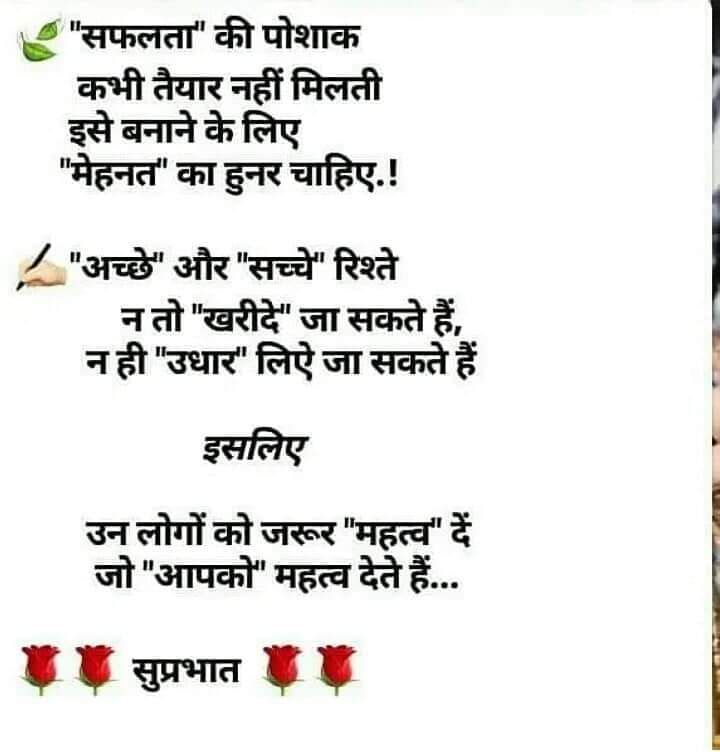 "सफलता" की पोशाक
कभी तैयार नहीं मिलती
इसे बनाने के लिए
"मेहनत" का हुनर चाहिए.!
"अच्छे" और "सच्चे" रिश्ते
न तो "खरीदे" जा सकते हैं,
न ही "उधार" लिऐ जा सकते हैं
इसलिए
उन लोगों को जरूर "महत्व" दें
जो "आपको" महत्व देते हैं...
सुप्रभात